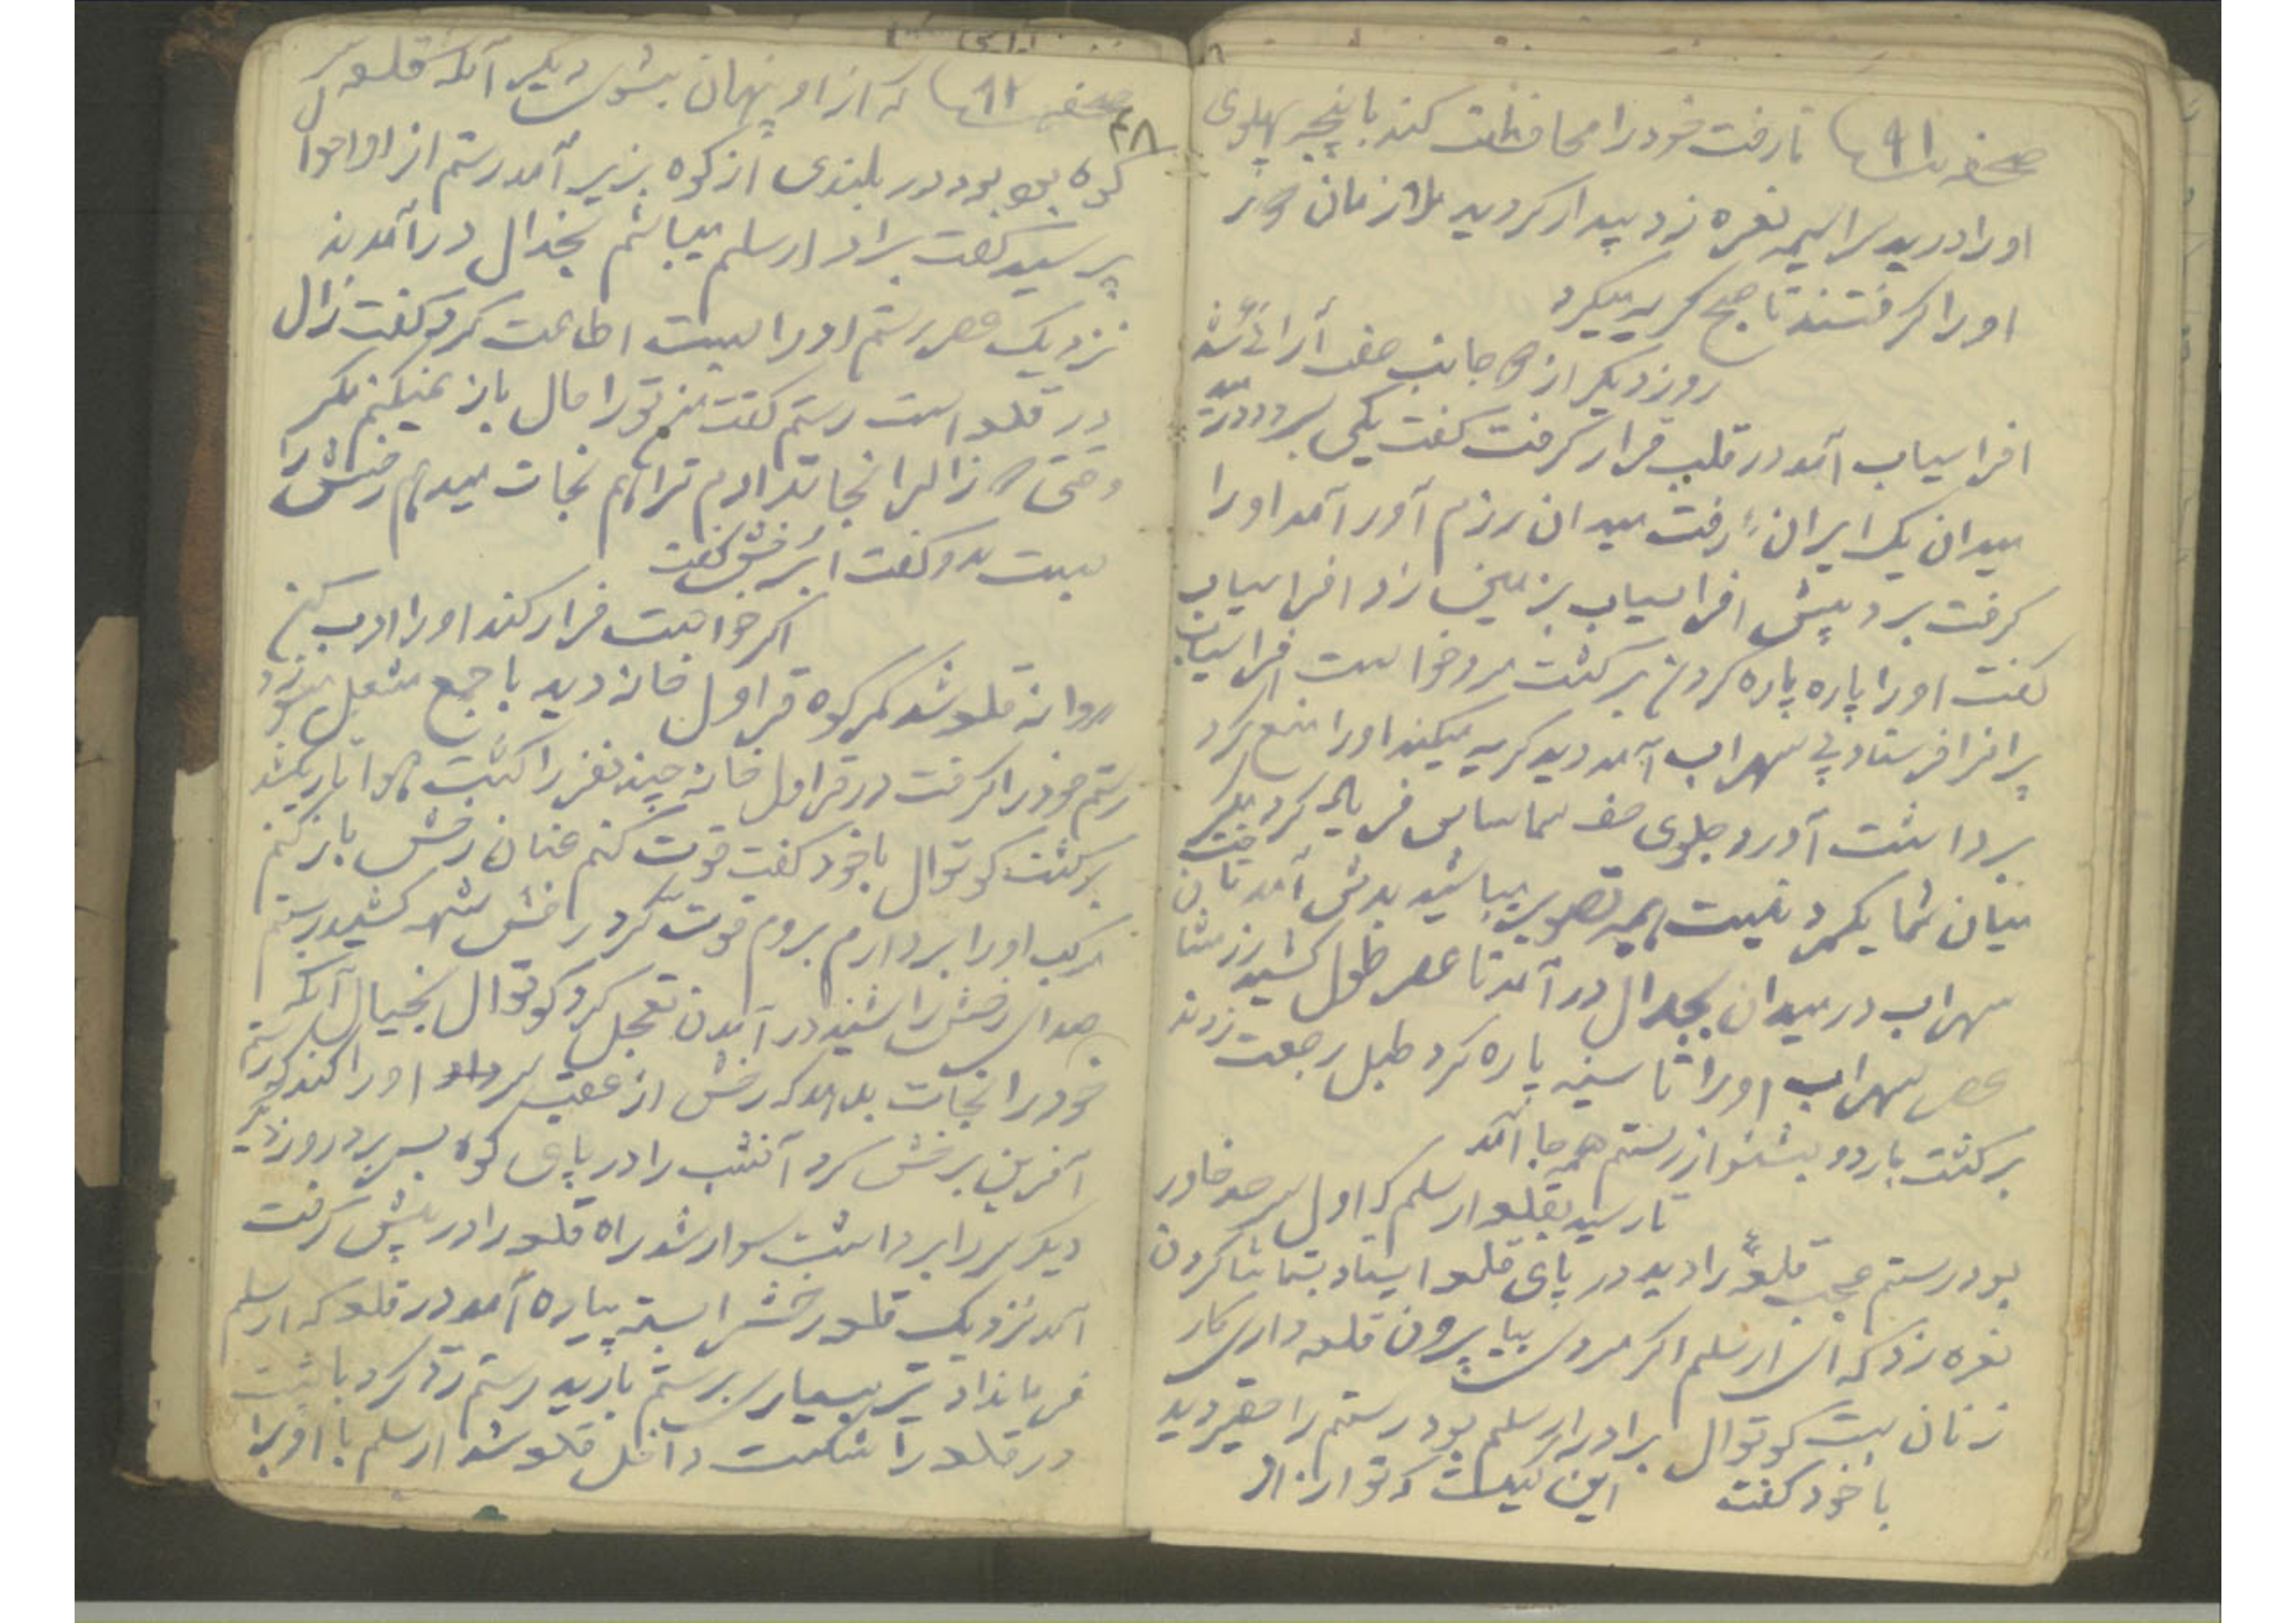 صحفه ۹۱ تا رفت خود را محافظت کند با پنجه پهلوی
او را درید سراسیمه نعره زد بیدار کردید ملازمان
او را گرفتند تا صبح گریه میکرد
روز دیگر از دو جانب صف آرائی شد
افراسیاب آمد در قلب قرار گرفت گفت یکی برود در
میدان یک ایرانی رفت میدان رزم آور آمد او را
گرفت برد پیش افراسیاب بزمین زد افراسیاب
گفت او را پاره پاره کردند برگشت مرد خواست افراسیاب
پیرانرا فرستاد پی سهراب آمد دید گریه میکند او را منع کرد
برداشت آورد جلوی صف سام فریاد کرد مگر
میان شما یکمرد نیست همه تصویر میباشید بدش آمد تاخت
سهراب در میدان بجدال در آمد تا عصر طول کشید
عصر سهراب او را تا سینه پاره کرد طبل رجعت زدند
برگشت باردو بشنو از رستم همه جا آمد
تا رسید بقلعه ارسلم که اول سرحد خاور
بود رستم عجب قلعهٔ را دید در پای قلعه ایستاد بتماشا کردن
نعره زد که ای ارسلم اگر مردی بیا بیرون قلعه داری کار
زنان است کوتوال برادر ارسلم بود رستم را حقیر دید
با خود گفت این کیست که تو از او
۴۸
صحفه ۹۲ که از او پنهان بشوی دیگر آنکه قلعه سر
کوه بود در بلندی از کوه بزیر آمد رستم از او احوال
پرسید گفت برادر ارسلم میباشم بجدال در آمدند
نزدیک عصر رستم او را بست اطاعت کرد گفت زال
در قلعه است رستم گفت من تو را حال باز نمیکنم مگر
وقتی که زالرا نجات دادم ترا هم نجات میدهم رخش را
بست بدو گفت ای رخش گفت
اگر خواست فرار کند او را ادب کن
روانه قلعه شد کمر کوه قراول خانه دید با جمع مشعل میسوزد
رستم خود را گرفت در قراول خانه چند نفر را کشت هوا تاریک شد
برگشت کوتوال با خود گفت قوت کنم عنان رخش باز کنم
مرکب او را بردارم بروم قوت کرد رخش شیهه کشید رستم
صدای رخش را شنید در آمدن تعجیل کرد کوتوال بخیال آنکه
خود را نجات بدهد که رخش از عقب سر او را کند رستم
آفرین بر رخش کرد آنشب را در پای کوه بسر برد روز دیگر
دیگر سر را برداشت سوار شد راه قلعه را در پیش گرفت
آمد نزدیک قلعه رخشرا بسته پیاده آمد در قلعه که ارسلم
فرمان داد تیر بسیار بر رستم بارید رستم رد کرد با مشت
در قلعه را شکست داخل قلعه شد ارسلم با او برابر